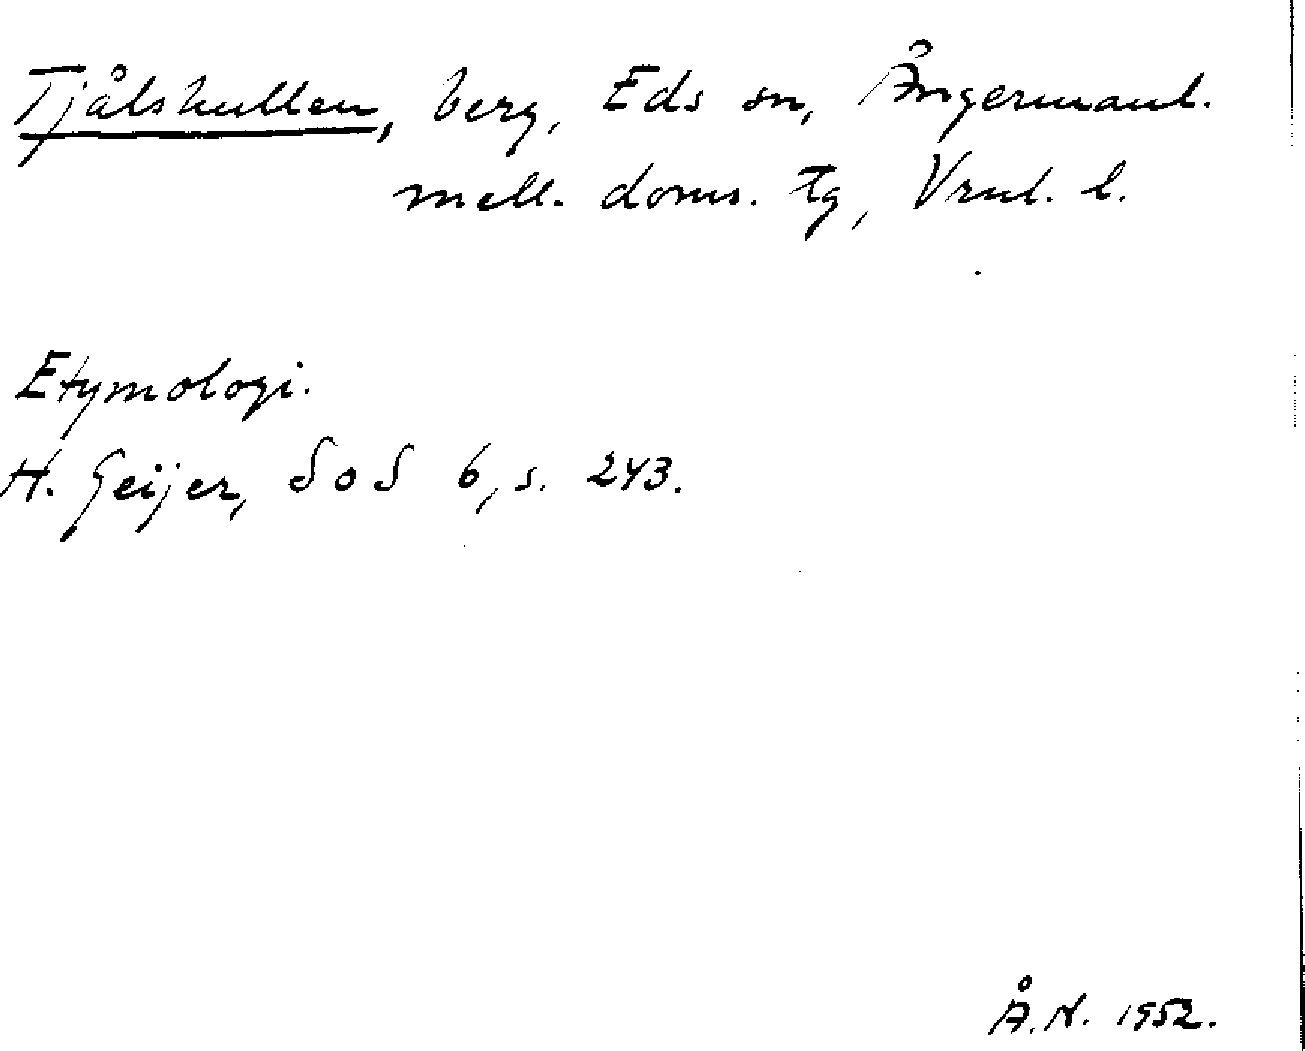 Tjålskullen, berg, Eds sn, Ångermanl.
mell. doms. tg, Vrnl. l.
Etymologi.
H. Geijer, SoS 6, s. 243.
Å.N. 1952.